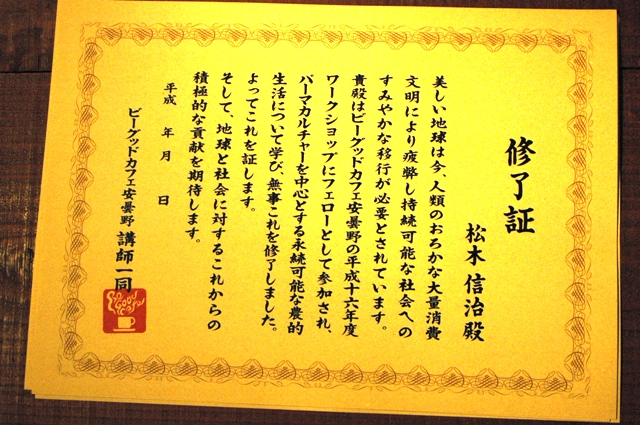 修了証
松木 信治 殿
美しい地球は今、人類のおろかな大量消費
文明により疲弊し持続可能な社会への
すみやかな移行が必要とされています。
貴殿はビーグッドカフェ安曇野の平成十六年度
ワークショップにフェローとして参加され、
パーマカルチャーを中心とする永続可能な農的
生活について学び、無事これを修了しました。
よってこれを証します。
そして、地球と社会に対するこれからの
積極的な貢献を期待します。
平成 年 月 日
ビーグッドカフェ安曇野 講師一同